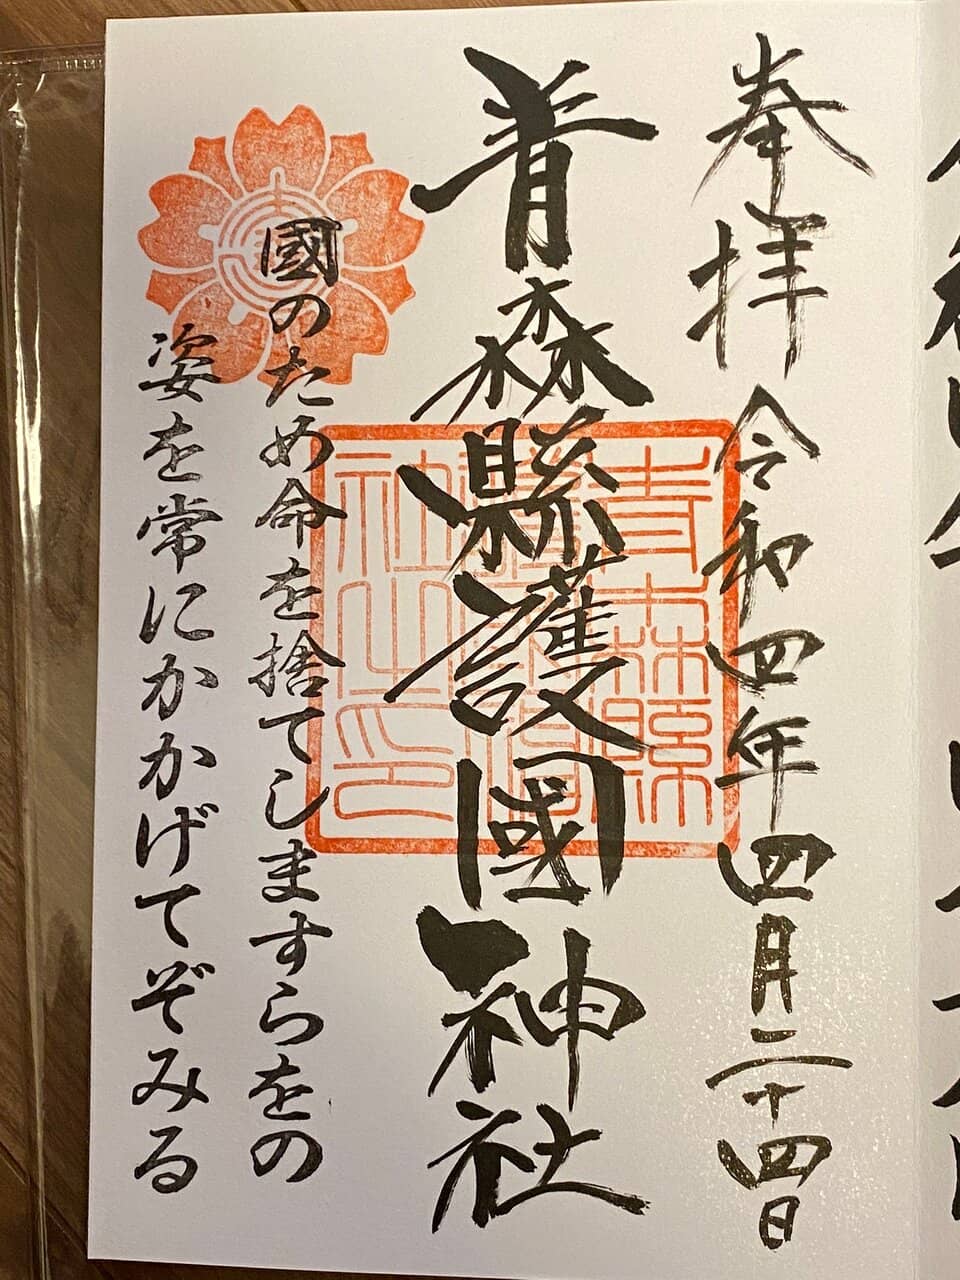 奉拝 令和四年四月二十四日
青森縣護國神社
國のため命を捨てしますらをの
姿を常にかかげてぞみる
青森縣
護國神
社之印